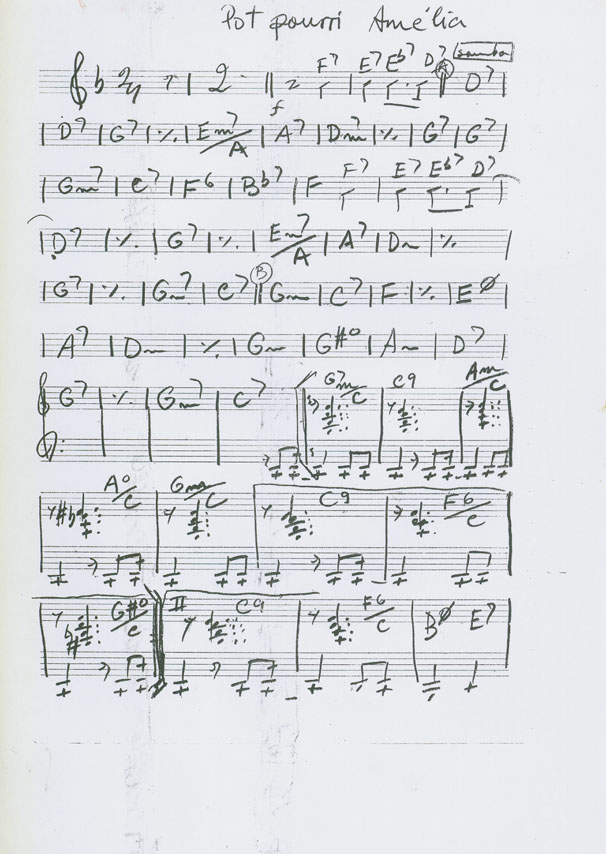 Pot pourri Amélia
F7 E7 Eb7 D7 A samba D7
f
D7 G7 ٪ Em7/A A7 Dm7 ٪ G7 G7
Gm7 C7 F6 Bb7 F F7 E7 Eb7 D7
D7 ٪ G7 ٪ Em7/A A7 Dm ٪
G7 ٪ Gm7 C7 B Gm C7 F ٪ EØ
A7 Dm ٪ Gm G#o Am D7
G7 ٪ Gm7 C7 G7m/C C9 Am/C
Ao/C Gm/C C9 F6/C
G#o/C II C9 F6/C BØ E7